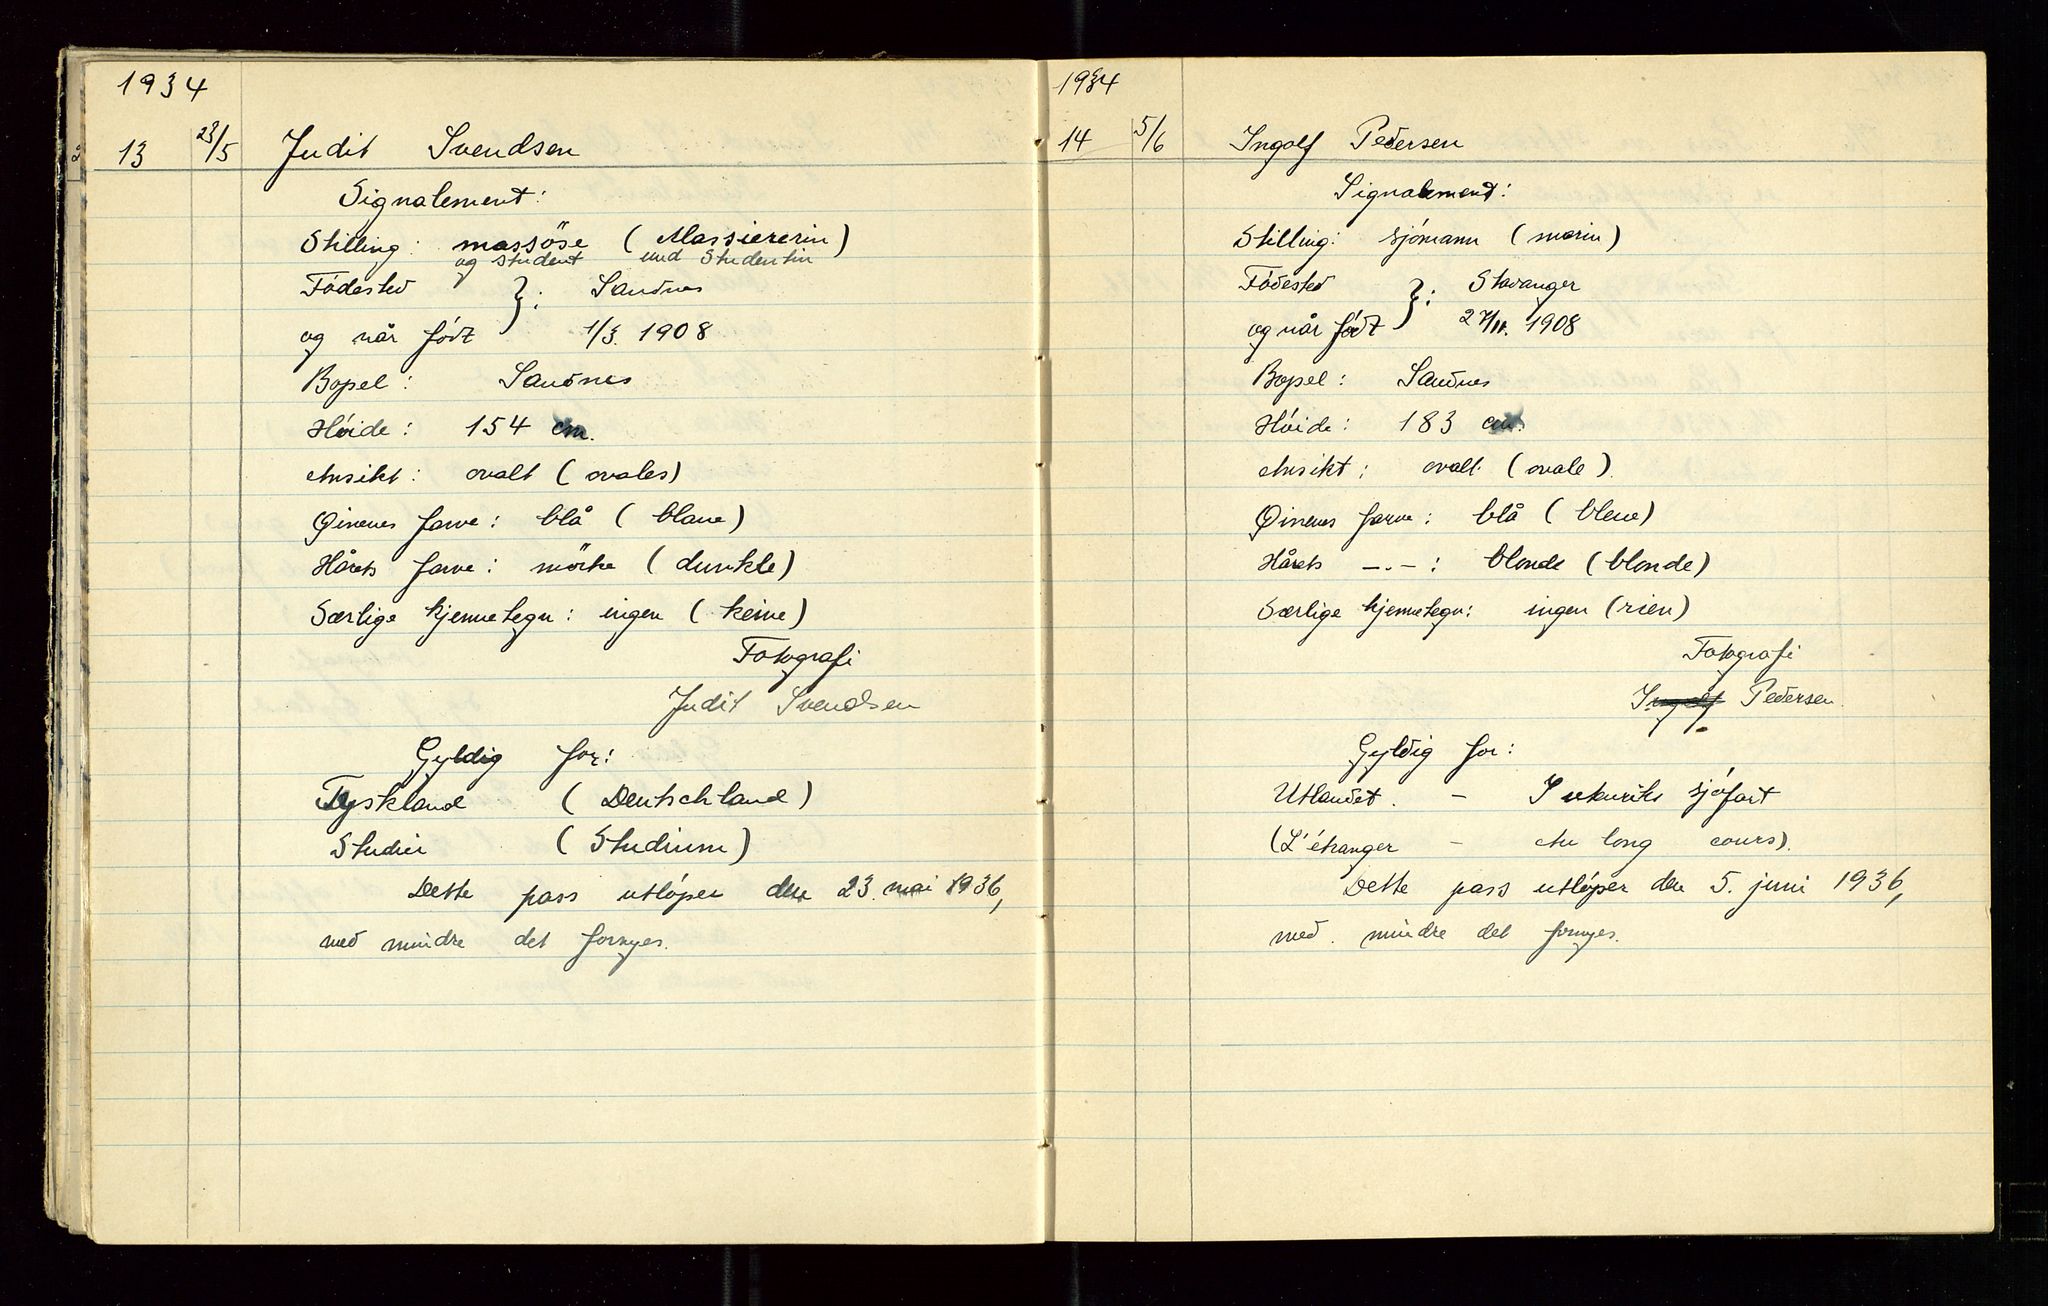 1934
13 23/5 Judit Svendsen
Signalement:
Stilling: massöse (Massiererin)
og student und Studentin
Födested } : Sandnes
og når född 1/3. 1908
Bopel: Sandnes
Höide: 154 cm.
Ansikt: ovalt (ovales)
Øinenes farve: blå (blaue)
Hårets farve: mörke (dunkle)
Særlige kjennetegn: ingen (keine)
Fotografi
Judit Svendsen
Gyldig for:
Tyskland (Deutschland)
Studier (Studium)
Dette pass utlöper den 23. mai 1936,
med mindre det fornyes.
1934
14 5/6 Ingolf Pedersen
Signalement:
Stilling: sjömann (marin)
Födested } : Stavanger
og når född 27/11. 1908
Bopel: Sandnes
Höide: 183 cm.
Ansikt: ovalt (ovale).
Øinenes farve: blå (bleue)
Hårets -.-: blonde (blonde)
Særlige kjennetegn: ingen (rien)
Fotografi
Ingolf Pedersen.
Gyldig for:
Utlandet. - I utenriks sjöfart
(L'étranger - Au long cours).
Dette pass utlöper den 5. juni 1936,
med mindre det fornyes.